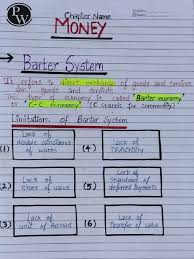 PW
Chapter Name
MONEY
Barter System
It refers to direct exchange of goods and services
for goods and services.
This type of economy is called "Barter economy"
or "C-C economy" (C stands for commodity)
Limitations of Barter System
(1) Lack of double coincidence of wants
(4) Lack of Divisibility
(2) Lack of Store of value
(5) Lack of Standard of deferred payments
(3) Lack of unit of Account
(6) Lack of Transfer of value